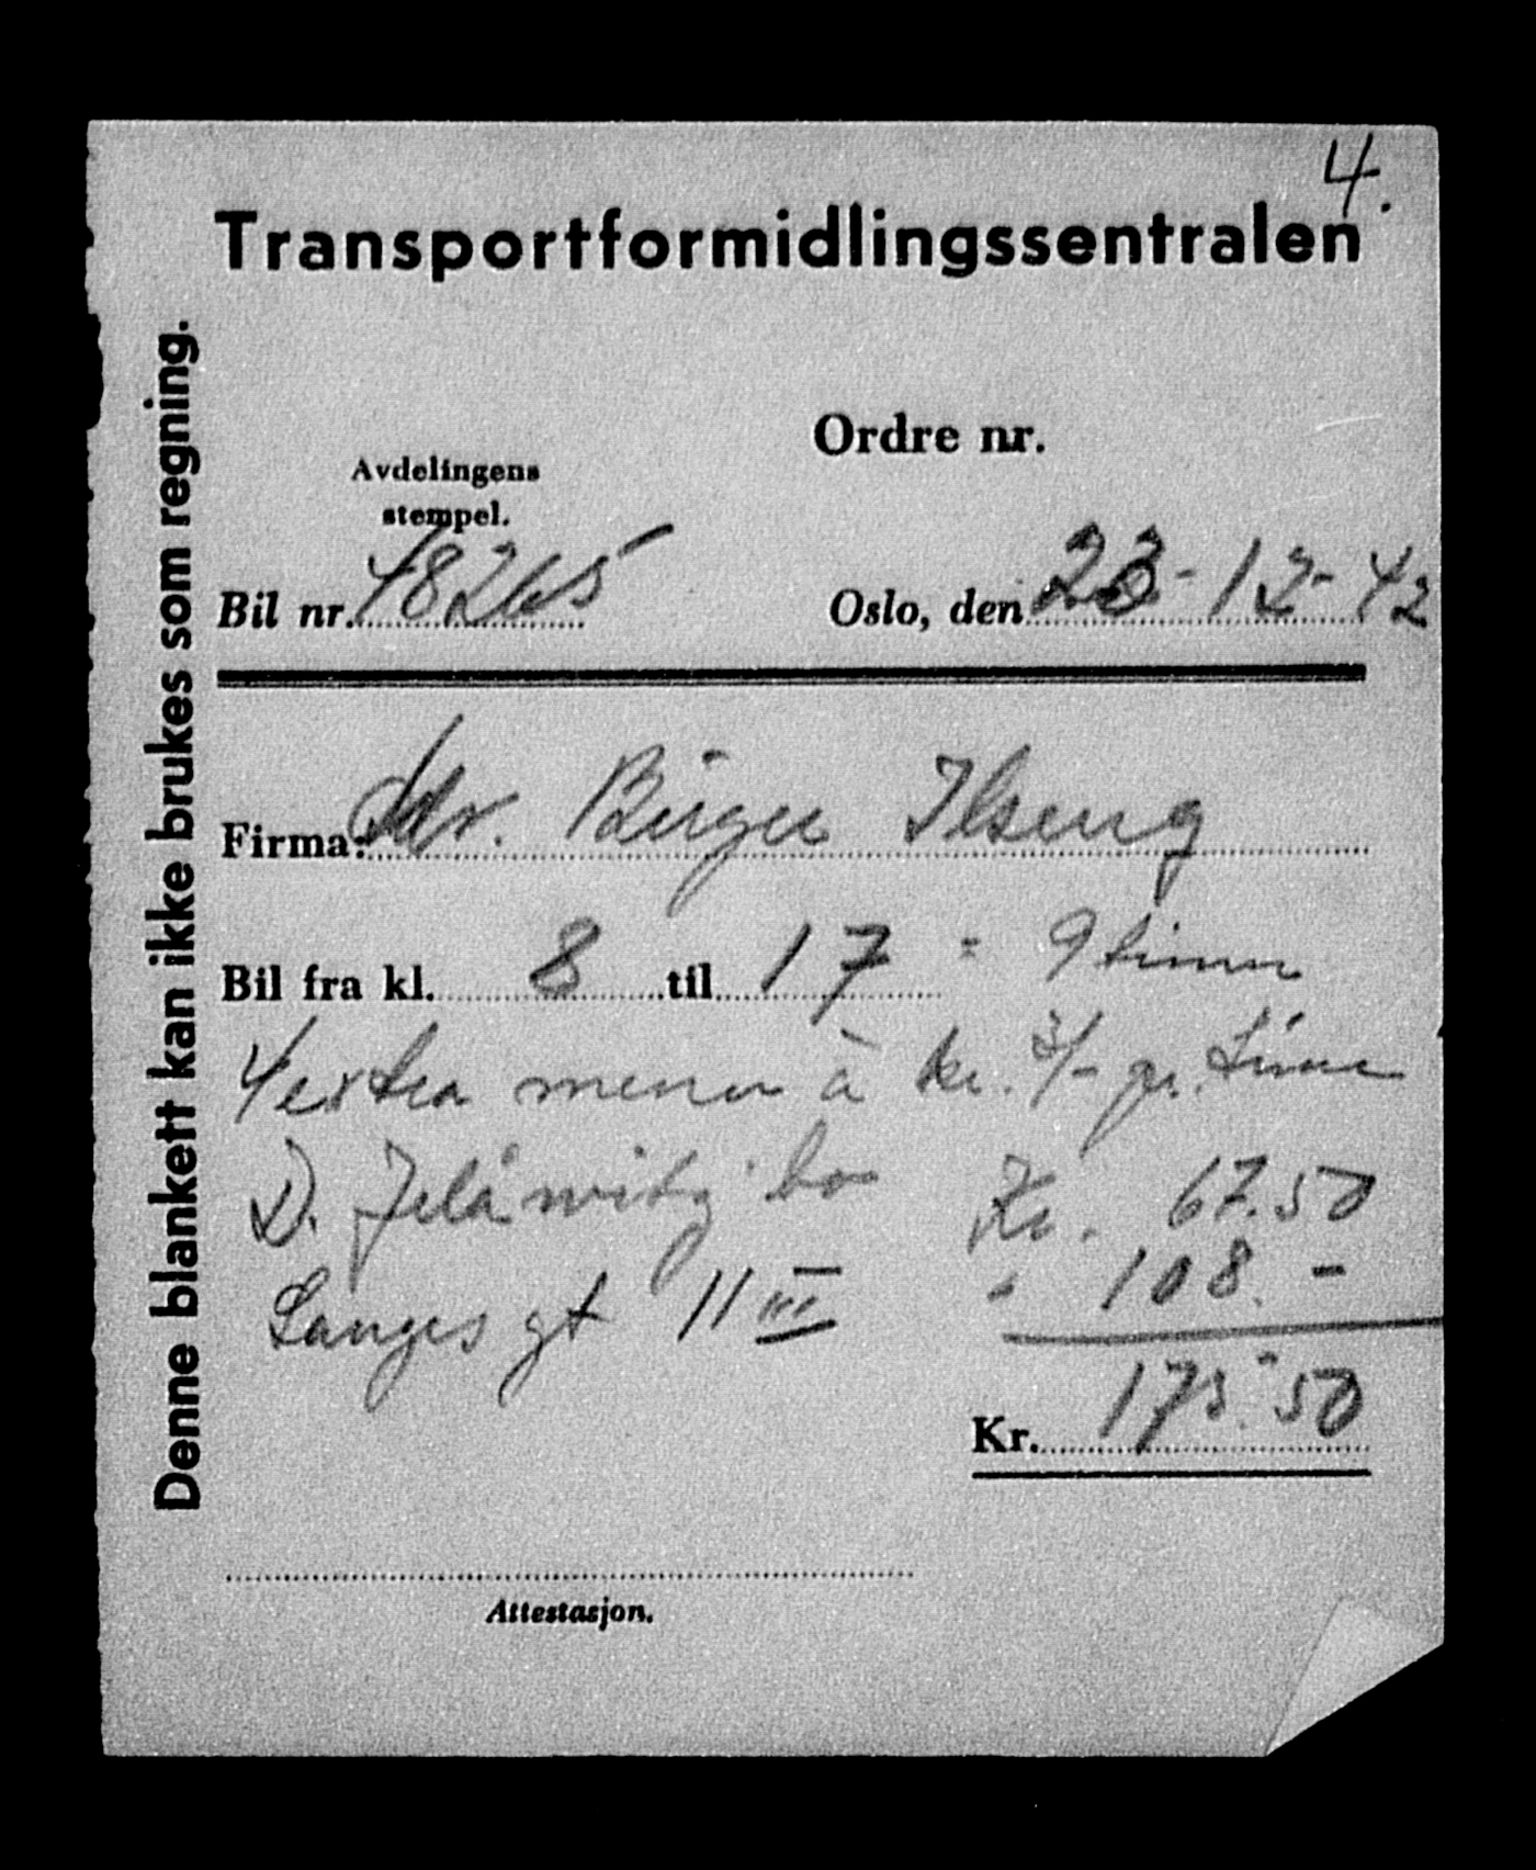 4.
Transportformidlingssentralen
Denne blankett kan ikke brukes som regning.
Ordre nr.
Avdelingens
stempel.
Bil nr. 18265
Oslo, den 23-12-42
Firma: Adv. Birger Ilseng
Bil fra kl. 8 til 17 = 9 timer
4 extra menn à kr. 3/- pr. time
D. Jelåwitz bo Kr. 67.50
Langes gt 11 III " 108.-
Kr. 175.50
Attestasjon.